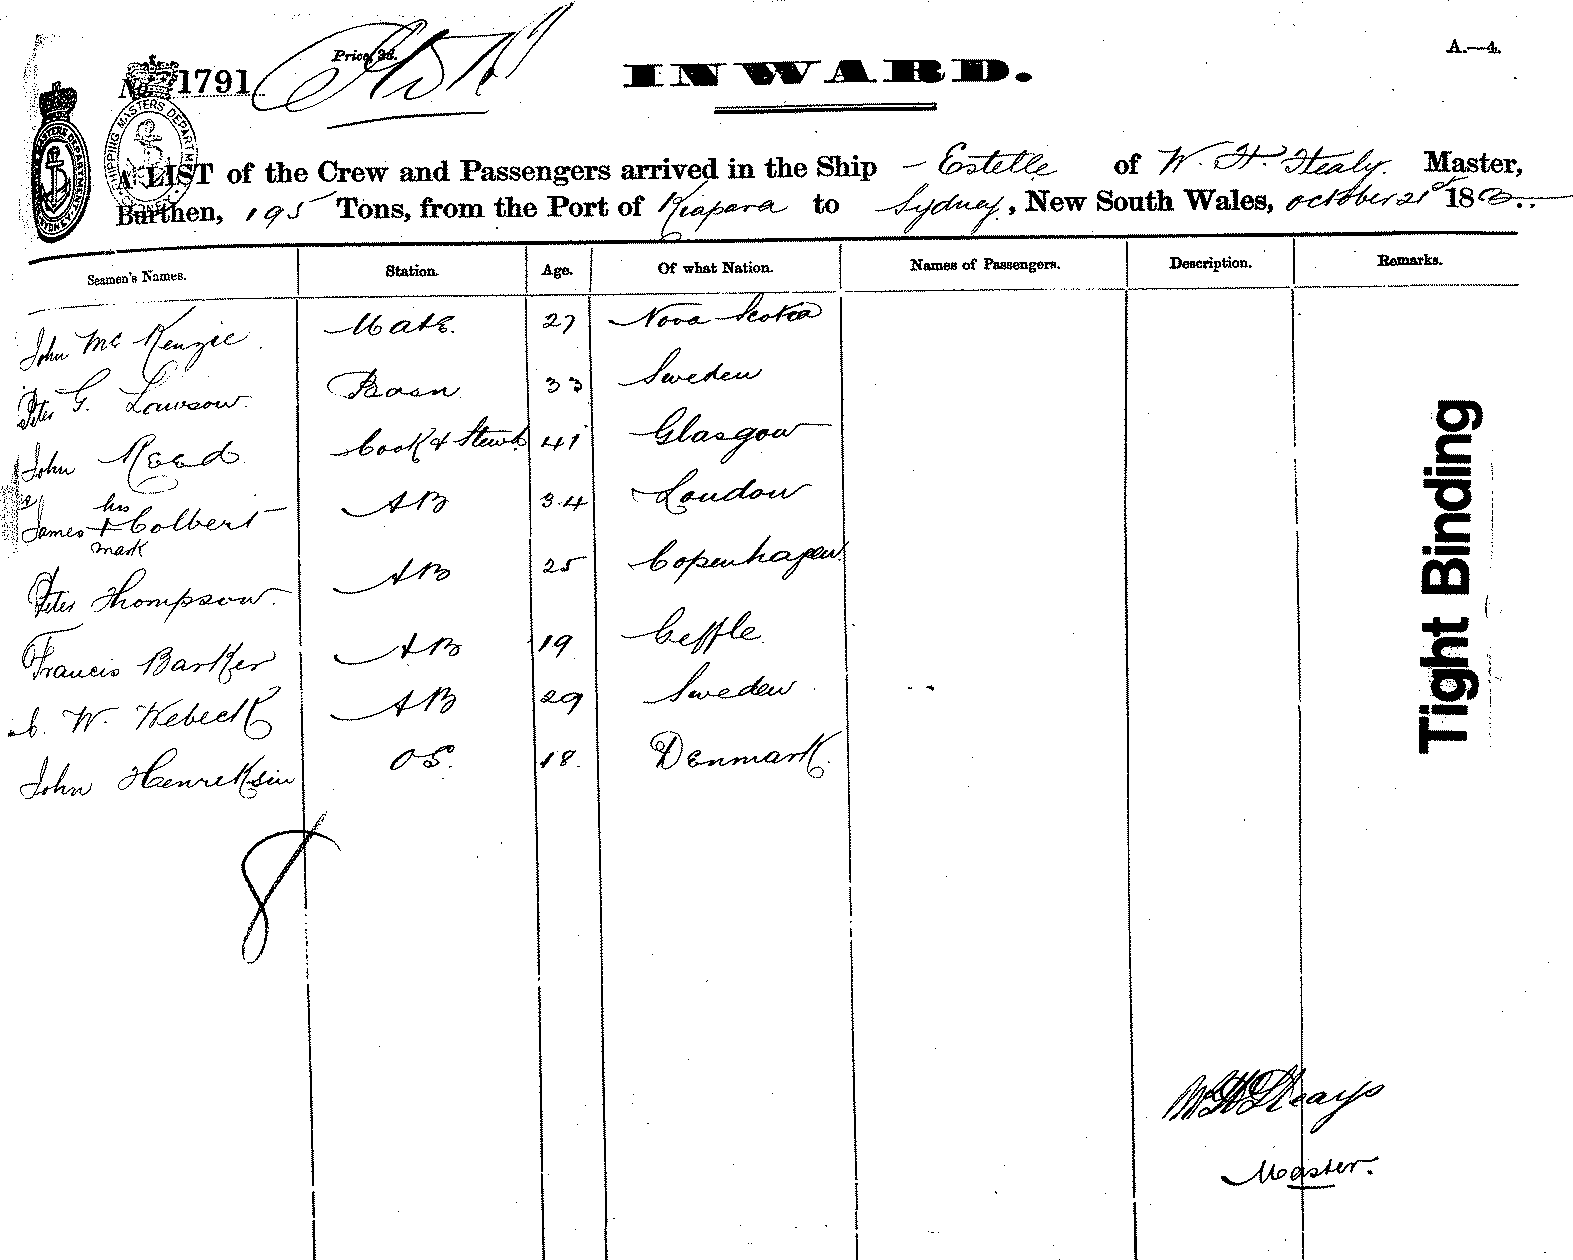 A.—4.
Price, 3d.
No. 1791
INWARD.
SHIPPING MASTERS DEPARTMENT
A LIST of the Crew and Passengers arrived in the Ship Estelle of W. H. Healy. Master,
Burthen, 195 Tons, from the Port of Kiapara to Sydney, New South Wales, october 21st 188
Seamen's Names. Station. Age. Of what Nation. Names of Passengers. Description. Remarks.
John Mc Kenzie Mate. 27 Nova Scotia
Peter G. Lawson Bosn 33 Sweden
John Reed Cook & Stewd. 41 Glasgow
James his + mark Colbert AB 34 London
Peter Thompson AB 25 Copenhagen
Francis Barker AB 19 Geffle
C. W. Webeck AB 29 Sweden
John Henreksin OS. 18. Denmark.
8
Tight Binding
Master.